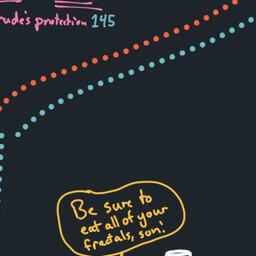 rude's protection 145
Be sure to
eat all of your
fractals, son!